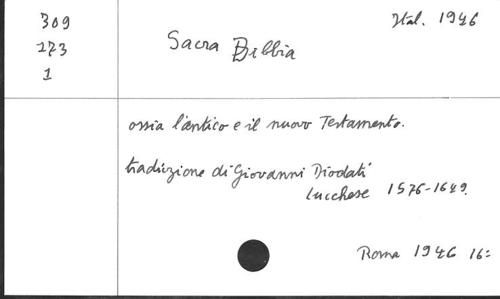 309
173
1
Ital. 1946
Sacra Bibbia
ossia l'antico e il nuovo Testamento.
traduzione di Giovanni Diodati
Lucchese 1576-1649.
Roma 1946 16=